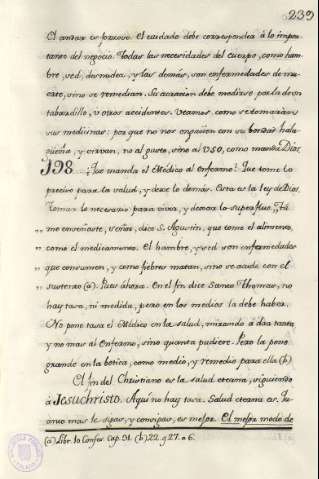 239
El amar es forzoso. El cuidado debe corresponder à lo impor-
tante del negocio. Todas las necesidades del cuerpo, como ham-
bre, sed, desnudez, y las demás, son enfermedades de mu-
erte, sino se remedian. Su curación debe medirse por la de un
tabardillo, ù otros accidentes. Veamos, como se tomarían
sus medicinas: por que no nos engañen con su bondad hala
güeña, y sirvan, no al gusto, sino al USO, como manda Dios.
198. ¿Que manda el Médico al enfermo? Que tome lo
preciso para la salud, y dexe lo demás. Esta es la ley de Dios.
Tomar lo necesario para vivir, y dexar lo superfluo. „Tú
me enseñaste, señor, dice S. Agustin, que tome el alimento,
„ como el medicamento. El hambre, y sed son enfermedades
„ que consumen, y como fiebres matan, sino se acude con el
„ sustento (a). Pues ahora. En el fin dice Santo Thomas, no
hay tasa, ni medida, pero en los medios la debe haber.
No pone tasa el Médico en la salud, mirando à dar tanta,
y no mas al Enfermo, sino quanta pudiere. Pero la pone
grande en la botica, como medio, y remedio para ella (b).
El fin del Christiano es la salud eterna, siguiendo
à Jesuchristo. Aqui no hay tasa. Salud eterna es. Qu
anto mas le sigas, y consigas, es mejor. El mejor modo de
(a) Libr. 10 Confes. Cap. 31. (b) 2.2. q. 27. a. 6.